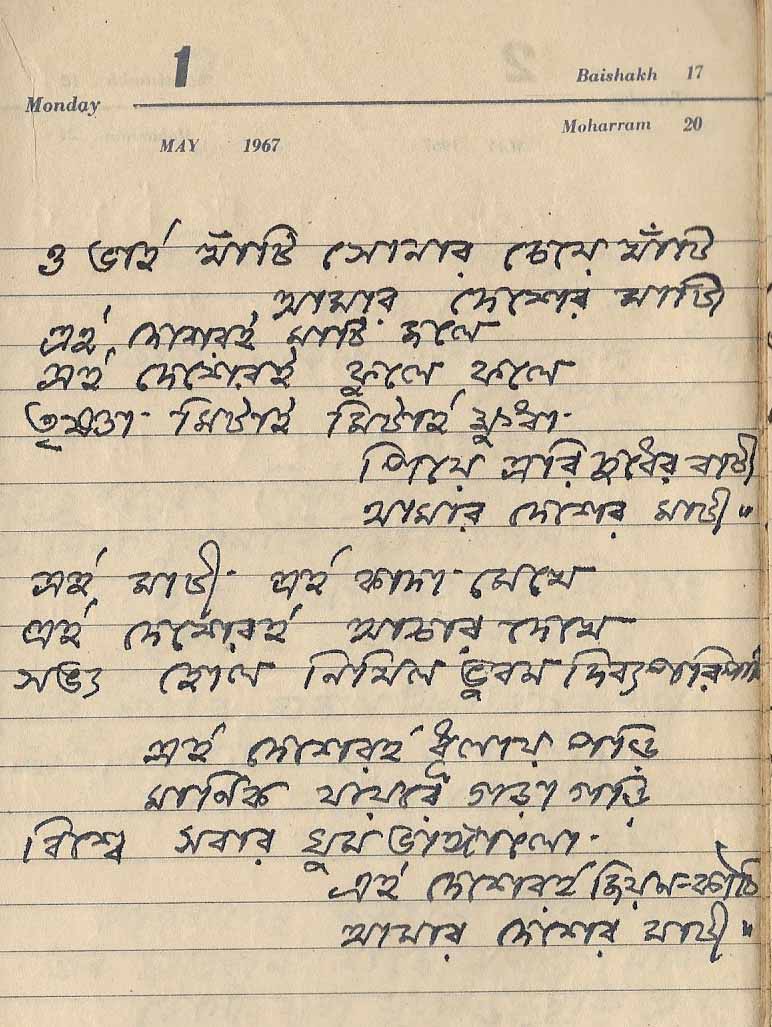 1
Baishakh 17
Monday
Moharram 20
MAY 1967
ও ভাই খাঁটি সোনার চেয়ে খাঁটি
আমার দেশের মাটি
এই দেশেরই মাটি জলে
এই দেশেরই ফুলে ফলে
তৃষ্ণা মিটাই মিটাই ক্ষুধা
পিয়ে এরি দুধের বাটী
আমার দেশের মাটী"
এই মাটী এই কাদা মেখে
এই দেশেরই আচার দেখে
সভ্য হোল নিখিল ভুবন দিব্য পরিপাটি
এই দেশেরই ধূলায় পড়ি
মানিক যায়রে গড়াগড়ি
বিশ্বে সবার ঘুম ভাঙ্গালো
এই দেশেরই জিয়ন-কাঠি
আমার দেশের মাটী"